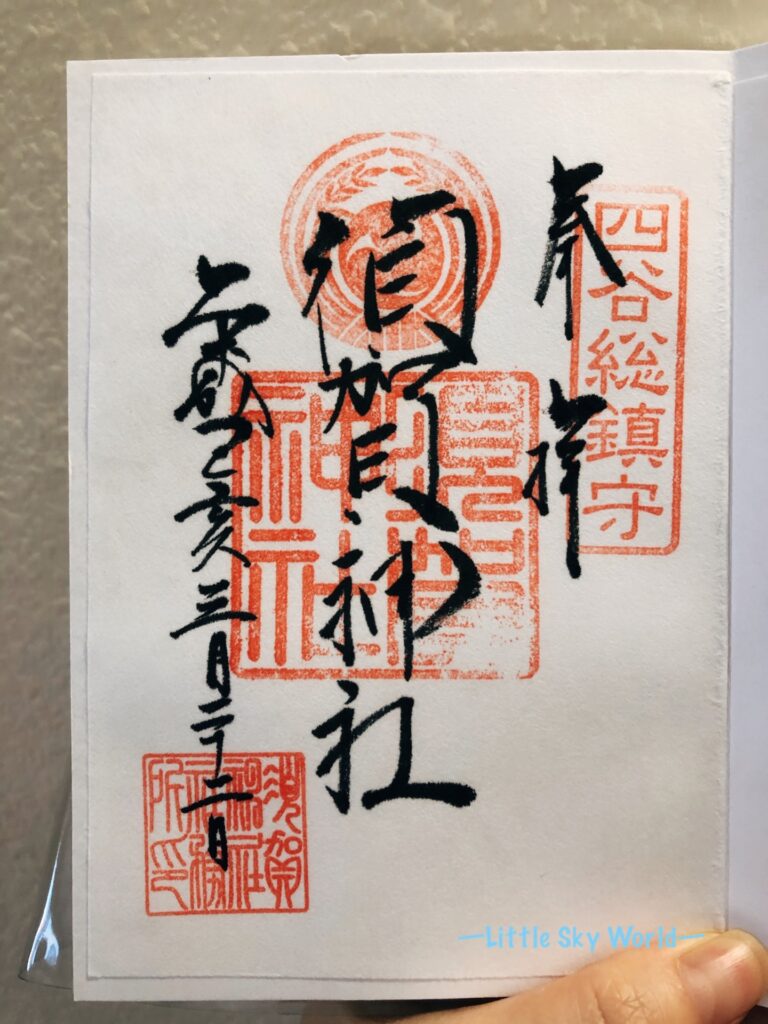 四谷総鎮守
奉拝
須賀神社
須賀
神社
己亥三月二十二日
須賀
神社
社務
所印
—Little Sky World—